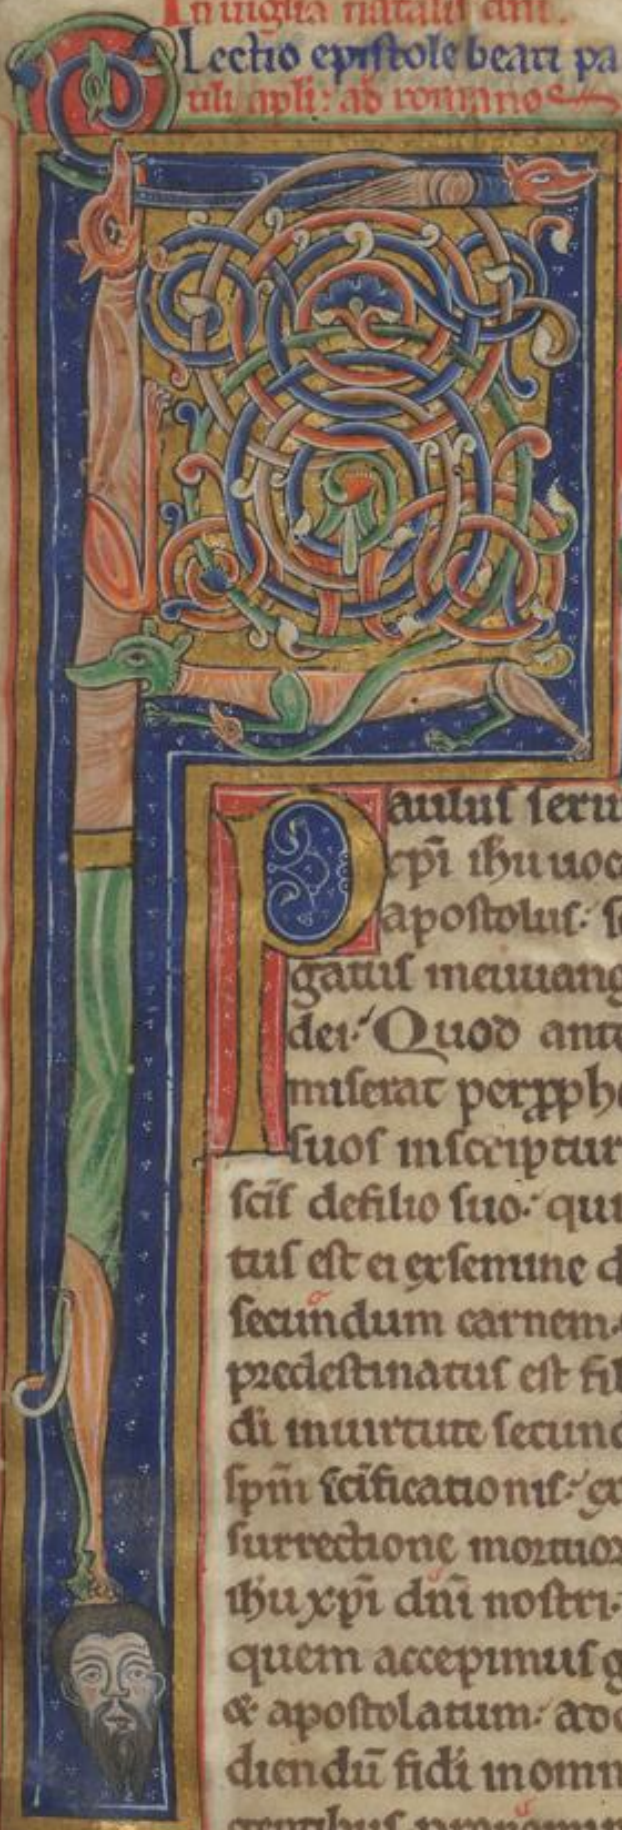 In uigilia natalis dni.
Lectio epistole beati pa
uli apli: ad romanos
Paulus seru
xpi ihu uoc
apostolus: se
gatus in euuang
dei. Quod ante
miserat per pphe
suos in scriptur
scis de filio suo. qui
tus est ei ex semine d
secundum carnem.
predestinatus est fil
di in uirtute secund
spm scificationis: ex
surrectione mortuor
ihu xpi dni nostri.
quem accepimus g
& apostolatum: ad o
diendū fidi in omn
gentibus pro nomin